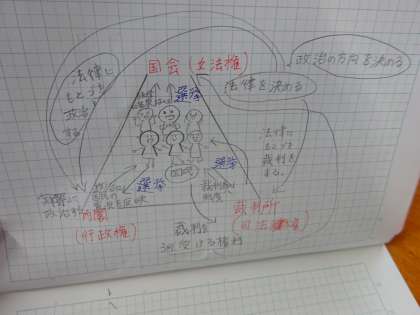 政治の方向を決める
国会(立法権)
法律を決める
法律に
もとづき
政治を
する
選挙
法律に
もとづき
裁判を
する
選挙
国民
選挙
内閣
(行政権)
裁判所
司法権
裁判を
受ける権利